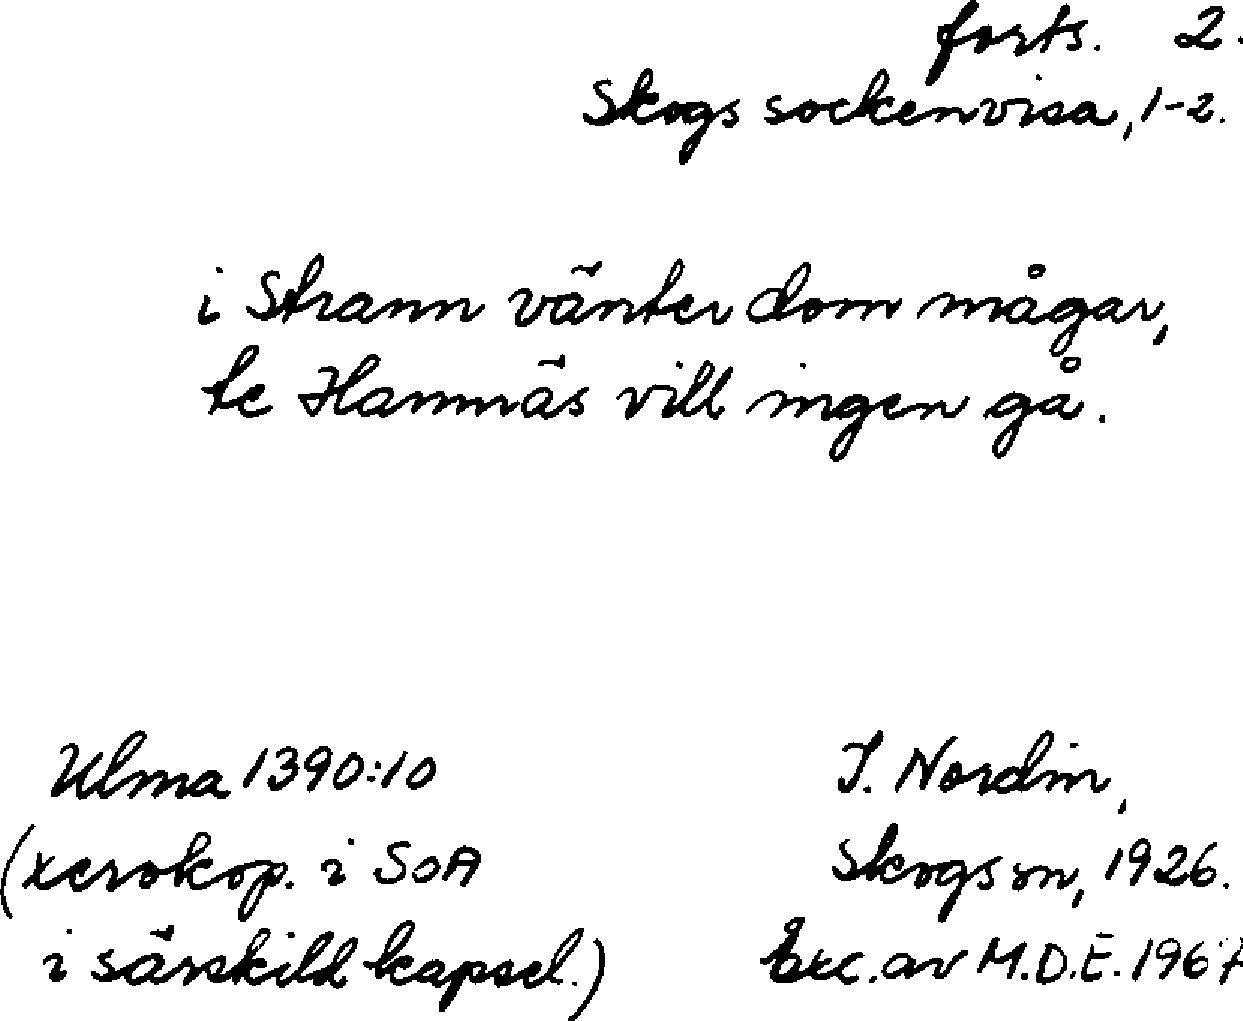 forts. 2.
Skogs sockenvisa, 1-2.
i Strann vänter dom mågar,
te Hamnäs vill ingen gå.
Ulma 1390:10
(xerokop. i SOA
i särskild kapsel.)
J. Nordin,
Skogs sn, 1926.
Exc. av M.D.E. 1967